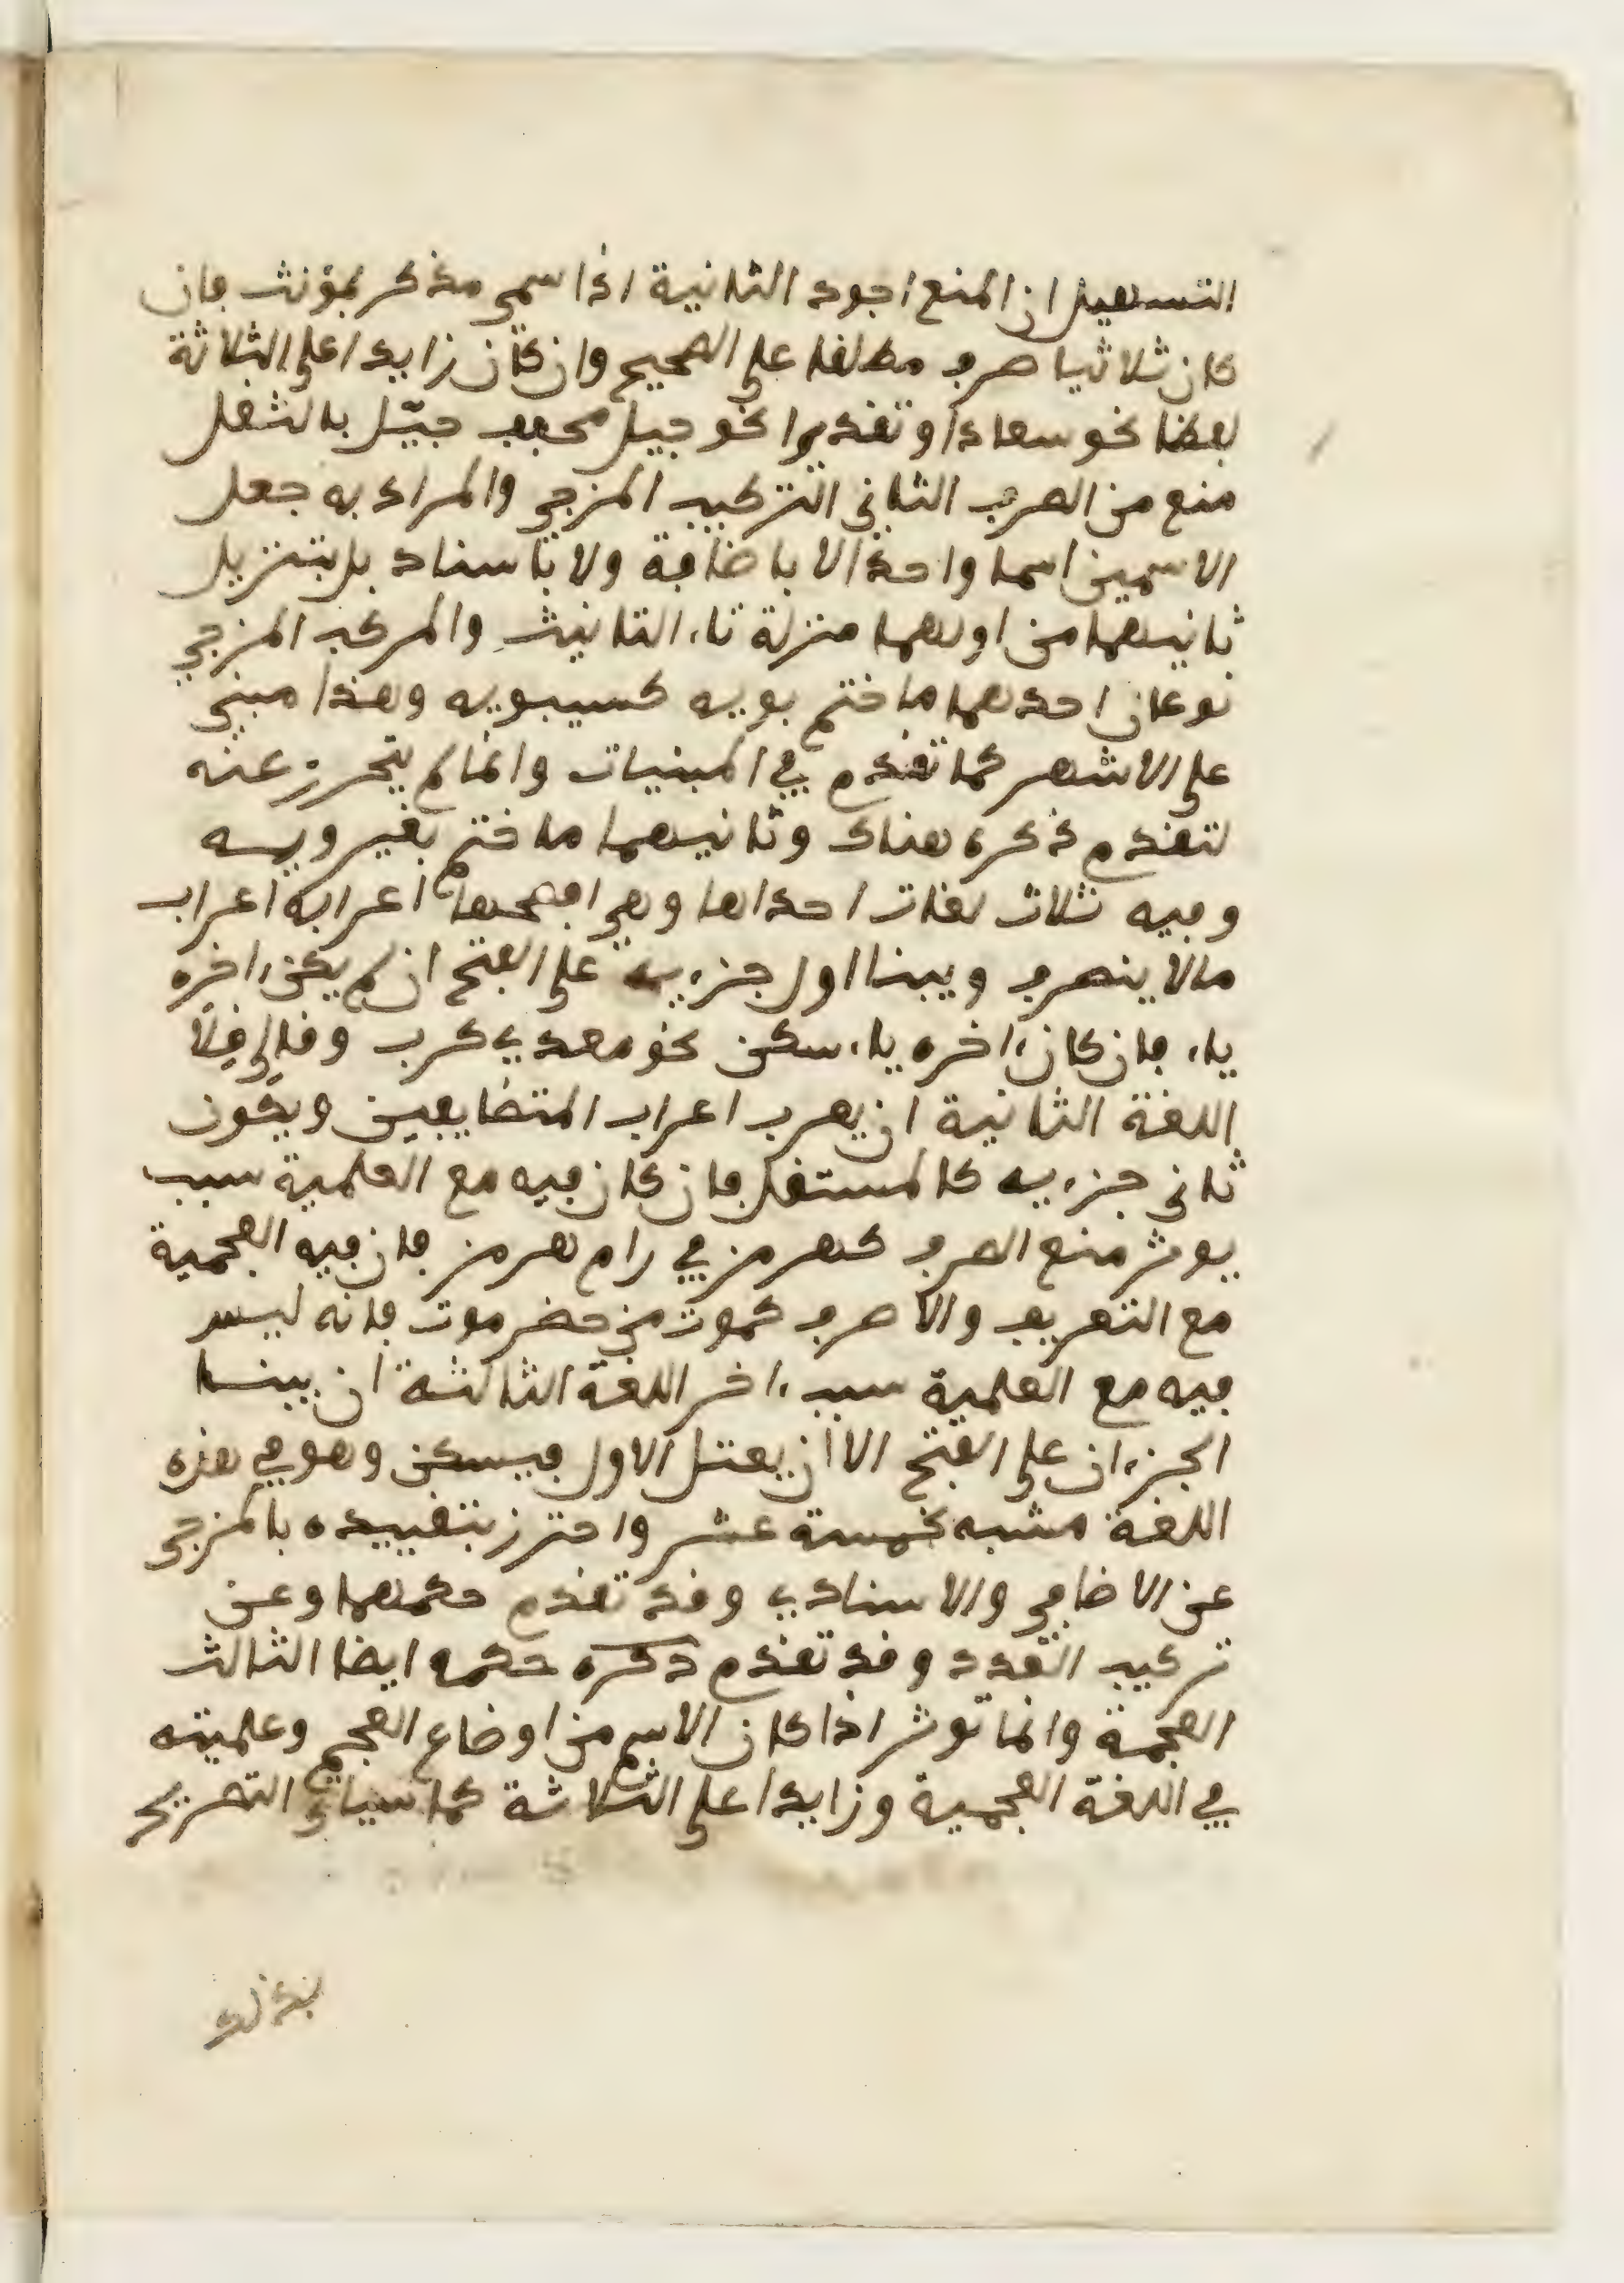 التسهيل ان المنع اجود الثانية اذا سمى مذكر بمؤنث فان
كان ثلاثيا صرف مطلقا على الصحيح وان كان زايدا على الثلاثة
لفظا نحو سعاد او تقديرا نحو جيل مخفف جيّل بالنقل
منع من الصرف الثانى التركيب المزجى والمراد به جعل
الاسمين اسما واحدا لا باضافة ولا باسناد بل بتنزيل
ثانيهما من اولهما منزلة تاء التانيث والمركب المزجي
نوعان احدهما ما ختم بويه كسيبويه وهذا مبني
على الاشهر كما تقدم في المبنيات وانما لم يتحرز عنه
لتقدم ذكره هناك وثانيهما ما ختم بغير ويه
وفيه ثلاث لغات احداها وهى افصحها اعرابه اعراب
مالا ينصرف ويبنا اول جزءيه على الفتح ان لم يكن ءاخره
ياء فان كان ءاخره ياء سكن نحو معدي كرب وقالي قلا
اللغة الثانية ان يعرب اعراب المتضايفين ويكون
ثانى جزءيه كالمستقل فان كان فيه مع العلمية سبب
يوثر منع الصرف كهرمز في رام هرمز فان فيه العجمية
مع التعريف والا صرف كموت من حضرموت فانه ليس
فيه مع العلمية سبب ءاخر اللغة الثالثة ان يبنا
الجزءان على الفتح الا ان يعتل الاول فيسكن وهو في هذه
اللغة مشبه بخمسة عشر واحترز بتقييده بالمزجى
عن الاضافي والاسنادي وقد تقدم حكمهما وعن
تركيب العدد وقد تقدم ذكره حكمه ايضا الثالث
العجمة وانما توثر اذا كان الاسم من اوضاع العجم وعلميته
في اللغة العجمية وزايدا على الثلاثة كما سياتى التصريح
بذلك